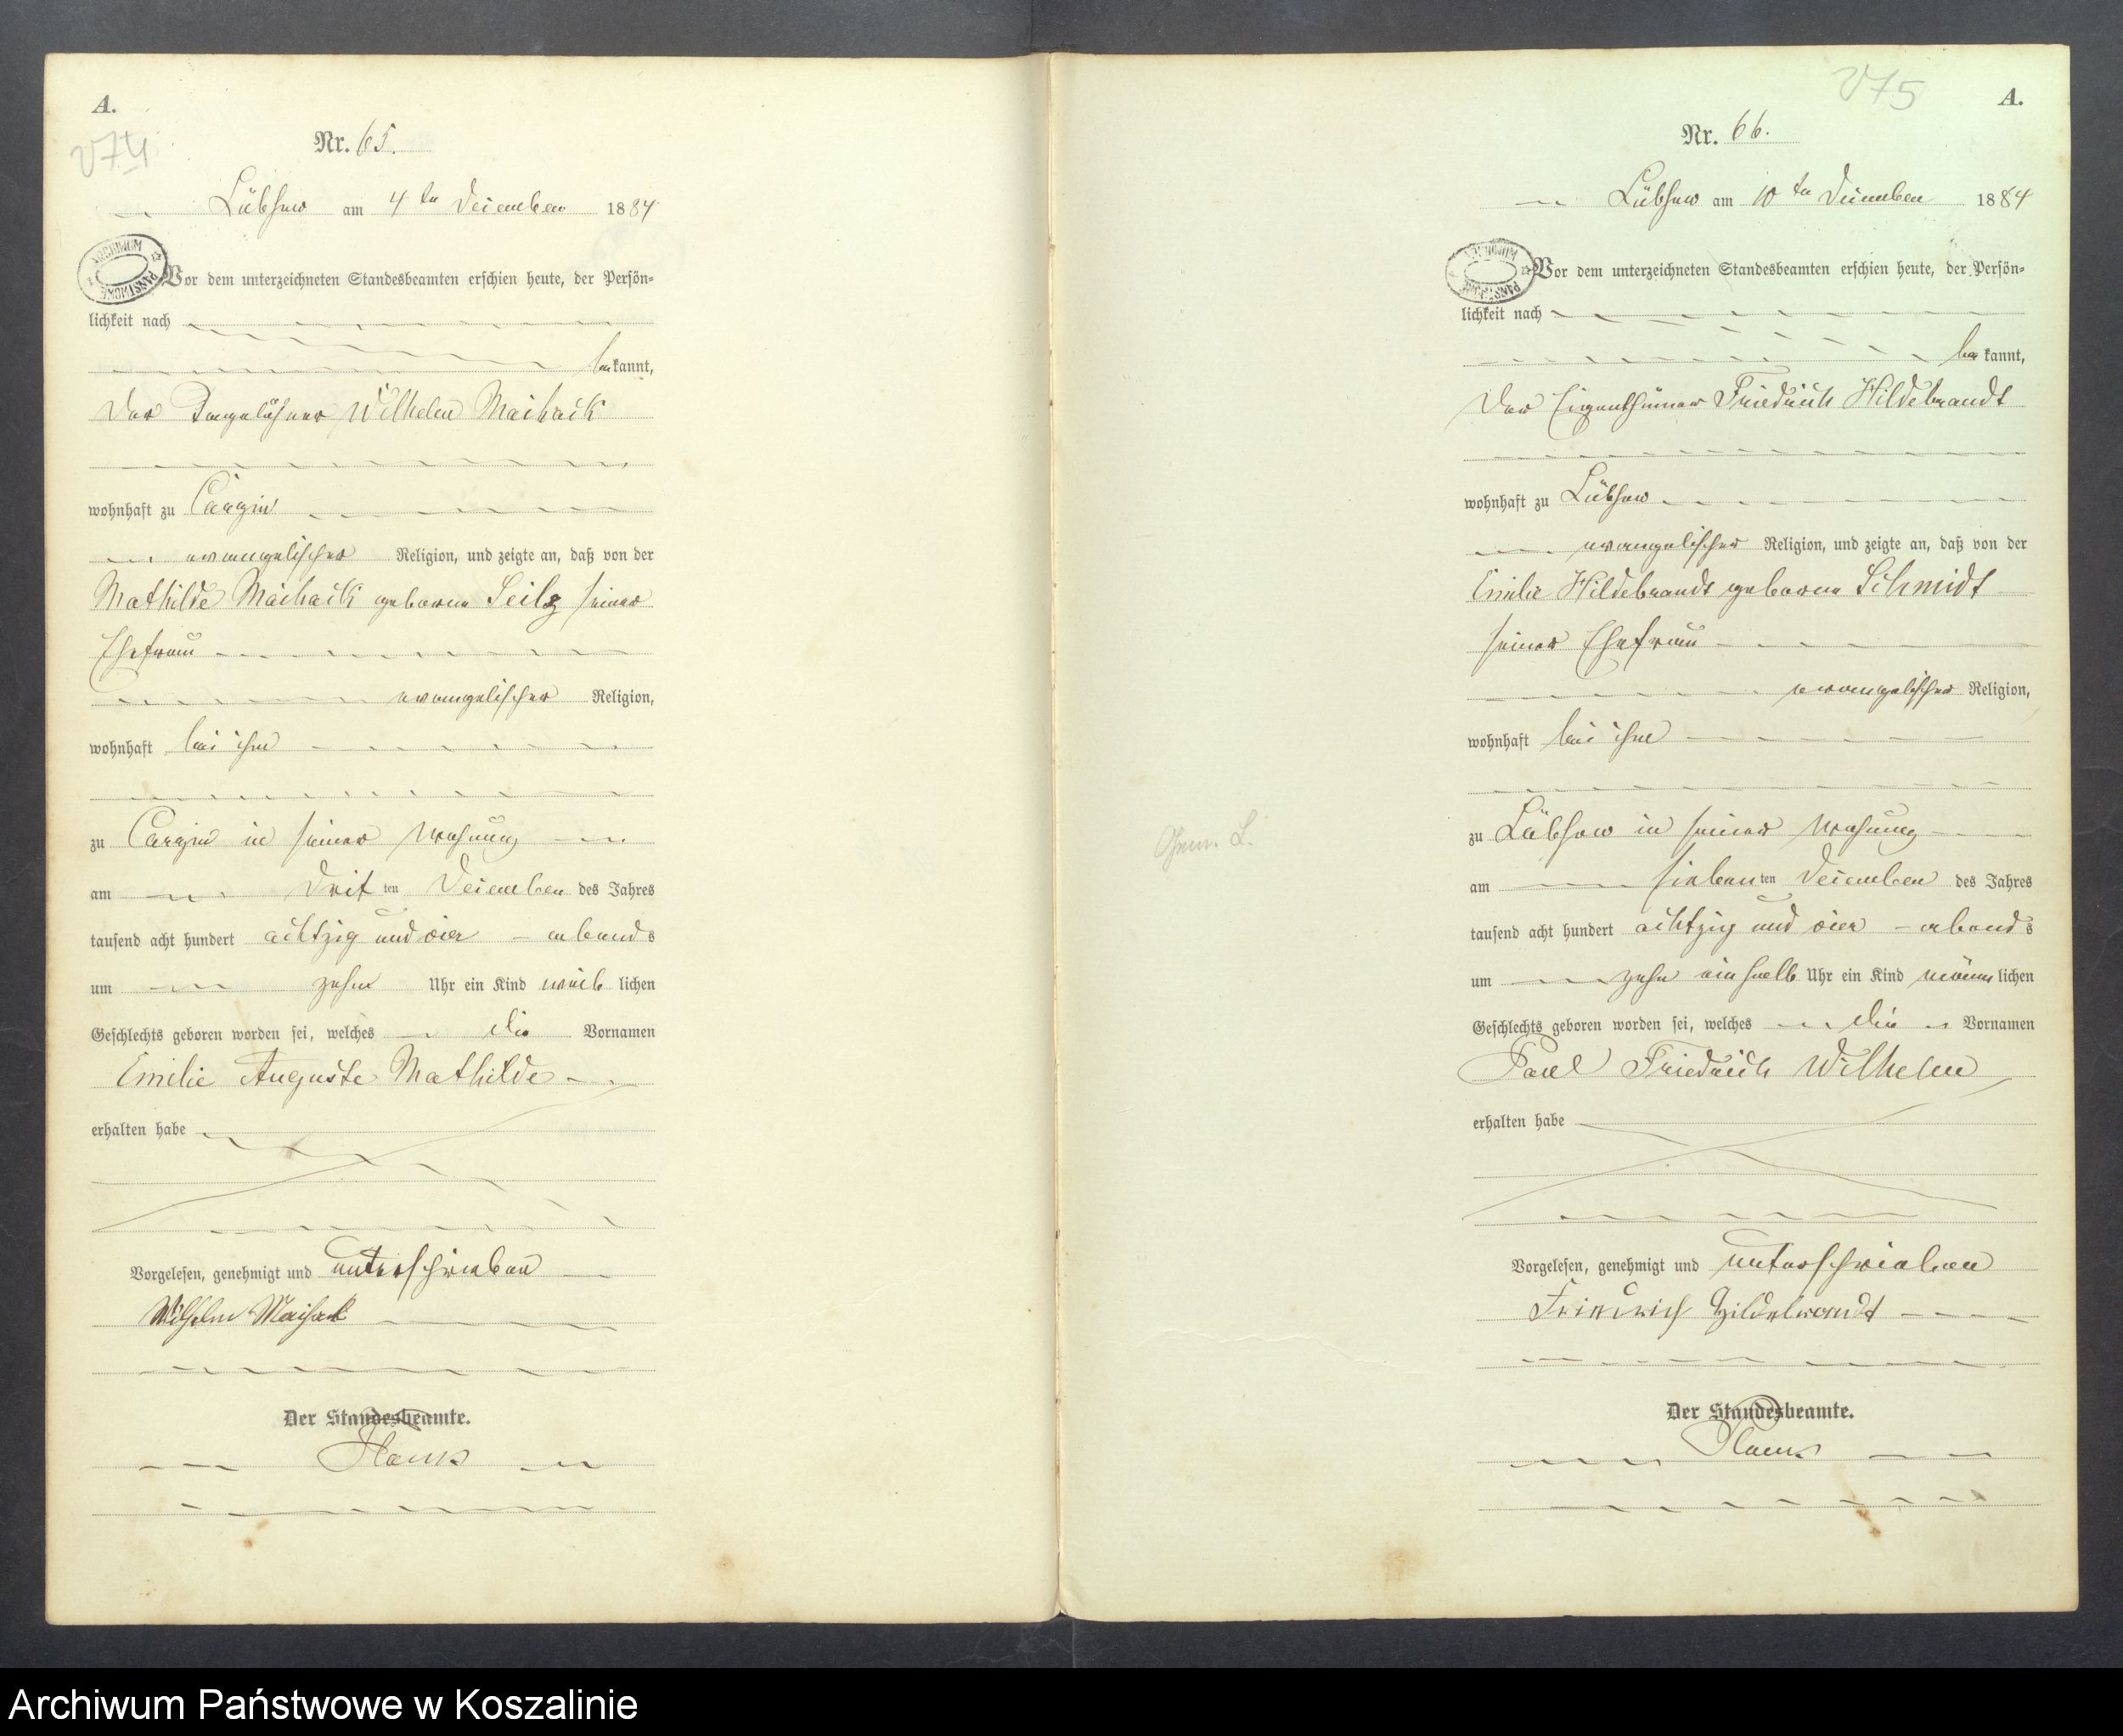 A.
V74
Nr. 65.
Lübsow am 4ten Dezember 1884
ARCHIWUM PAŃSTWOWE
Vor dem unterzeichneten Standesbeamten erschien heute, der Persön-
lichkeit nach
be kannt,
der Tagelöhner Wilhelm Maihack
wohnhaft zu Carzin
evangelischer Religion, und zeigte an, daß von der
Mathilde Maihack geborne Seils seiner
Ehefrau
evangelischer Religion,
wohnhaft bei ihm
zu Carzin in seiner Wohnung
am Drit ten Dezember des Jahres
tausend acht hundert achtzig und vier abends
um zehn Uhr ein Kind weib lichen
Geschlechts geboren worden sei, welches die Vornamen
Emilie Auguste Mathilde
erhalten habe
Vorgelesen, genehmigt und unterschrieben
Wilhelm Maihack
Der Standesbeamte.
V75
A.
Nr. 66.
Lübsow am 10ten Dezember 1884
ARCHIWUM PAŃSTWOWE
Vor dem unterzeichneten Standesbeamten erschien heute, der Persön-
lichkeit nach
be kannt,
der Eigenthümer Friedrich Hildebrandt
wohnhaft zu Lübsow
evangelischer Religion, und zeigte an, daß von der
Emilie Hildebrandt geborne Schmidt
seiner Ehefrau
evangelischer Religion,
wohnhaft bei ihm
zu Lübsow in seiner Wohnung
am sieben ten Dezember des Jahres
tausend acht hundert achtzig und vier abends
um zehn ein halb Uhr ein Kind männ lichen
Geschlechts geboren worden sei, welches die Vornamen
Paul Friedrich Wilhelm
erhalten habe
Vorgelesen, genehmigt und unterschrieben
Friedrich Hildebrandt
Der Standesbeamte.
Archiwum Państwowe w Koszalinie